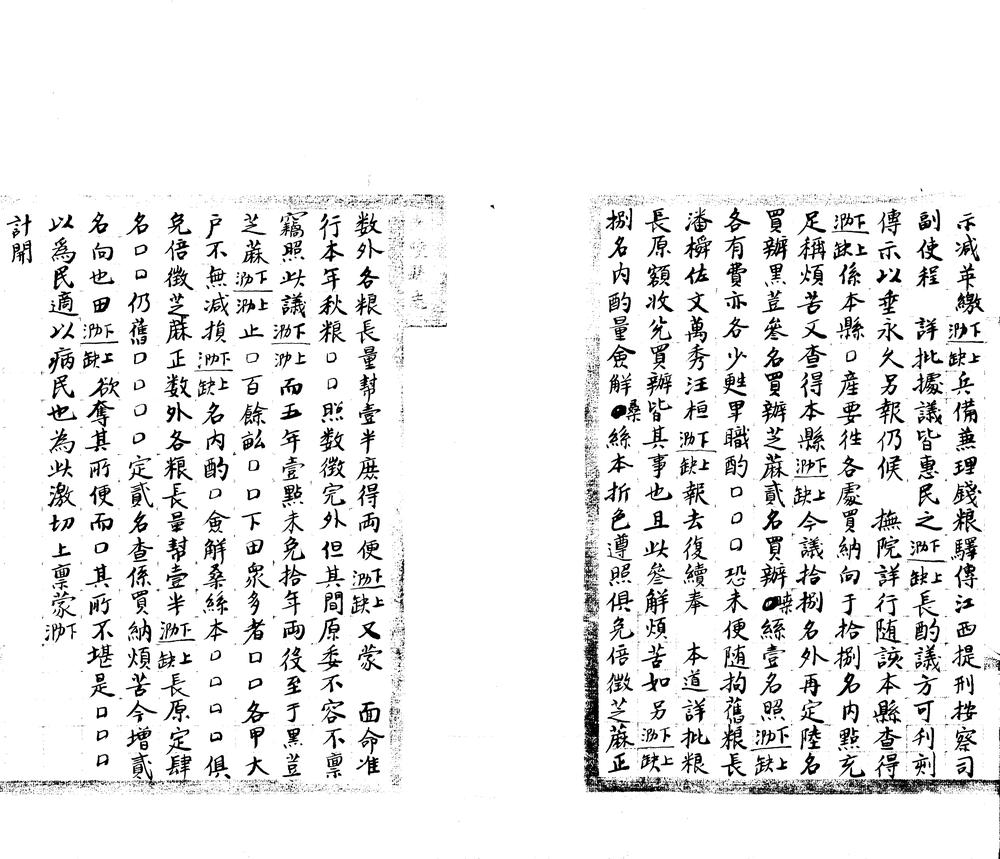 示減革繳泐下缺上兵備兼理錢粮驛傳江西提刑按察司
副使程　詳批據議皆惠民之泐下缺上長酌議方可刊刻
傳示以垂永久另報仍候　撫院詳行随該本縣查得
泐下缺上係本縣口產要徃各處買納向于拾捌名內點充
足稱煩苦又查得本縣泐下缺上今議拾捌名外再定陸名
買辦黑荳叄名買辦芝蔴貳名買辦桑絲壹名照泐下缺上
各有費亦各少甦卑職酌口口口恐未便随拘舊粮長
潘檙佐文萬秀汪桓泐下缺上報去復續奉　本道詳批粮
長原額收兊買辦皆其事也且此叄解煩苦如另泐下缺上
捌名內酌量僉解桑絲本折色遵照俱免倍徵芝蔴正
數外各粮長量幇壹半庶得両便泐下缺上又蒙　面命准
行本年秋粮口口照數徵完外但其間原委不容不禀
竊照此議泐下泐上而五年壹點未免拾年両役至于黑荳
芝蔴泐下泐上止口百餘畝口口下田衆多者口口各甲大
戶不無減損泐下缺上名內酌口僉解桑絲本口口口口俱
免倍徵芝蔴正數外各粮長量幇壹半泐下缺上長原定肆
名口口仍舊口口口口定貳名查係買納煩苦今增貳
名向也田泐下缺上欲奪其所便而口其所不堪是口口口
以爲民適以病民也為此激切上禀蒙泐下
計開